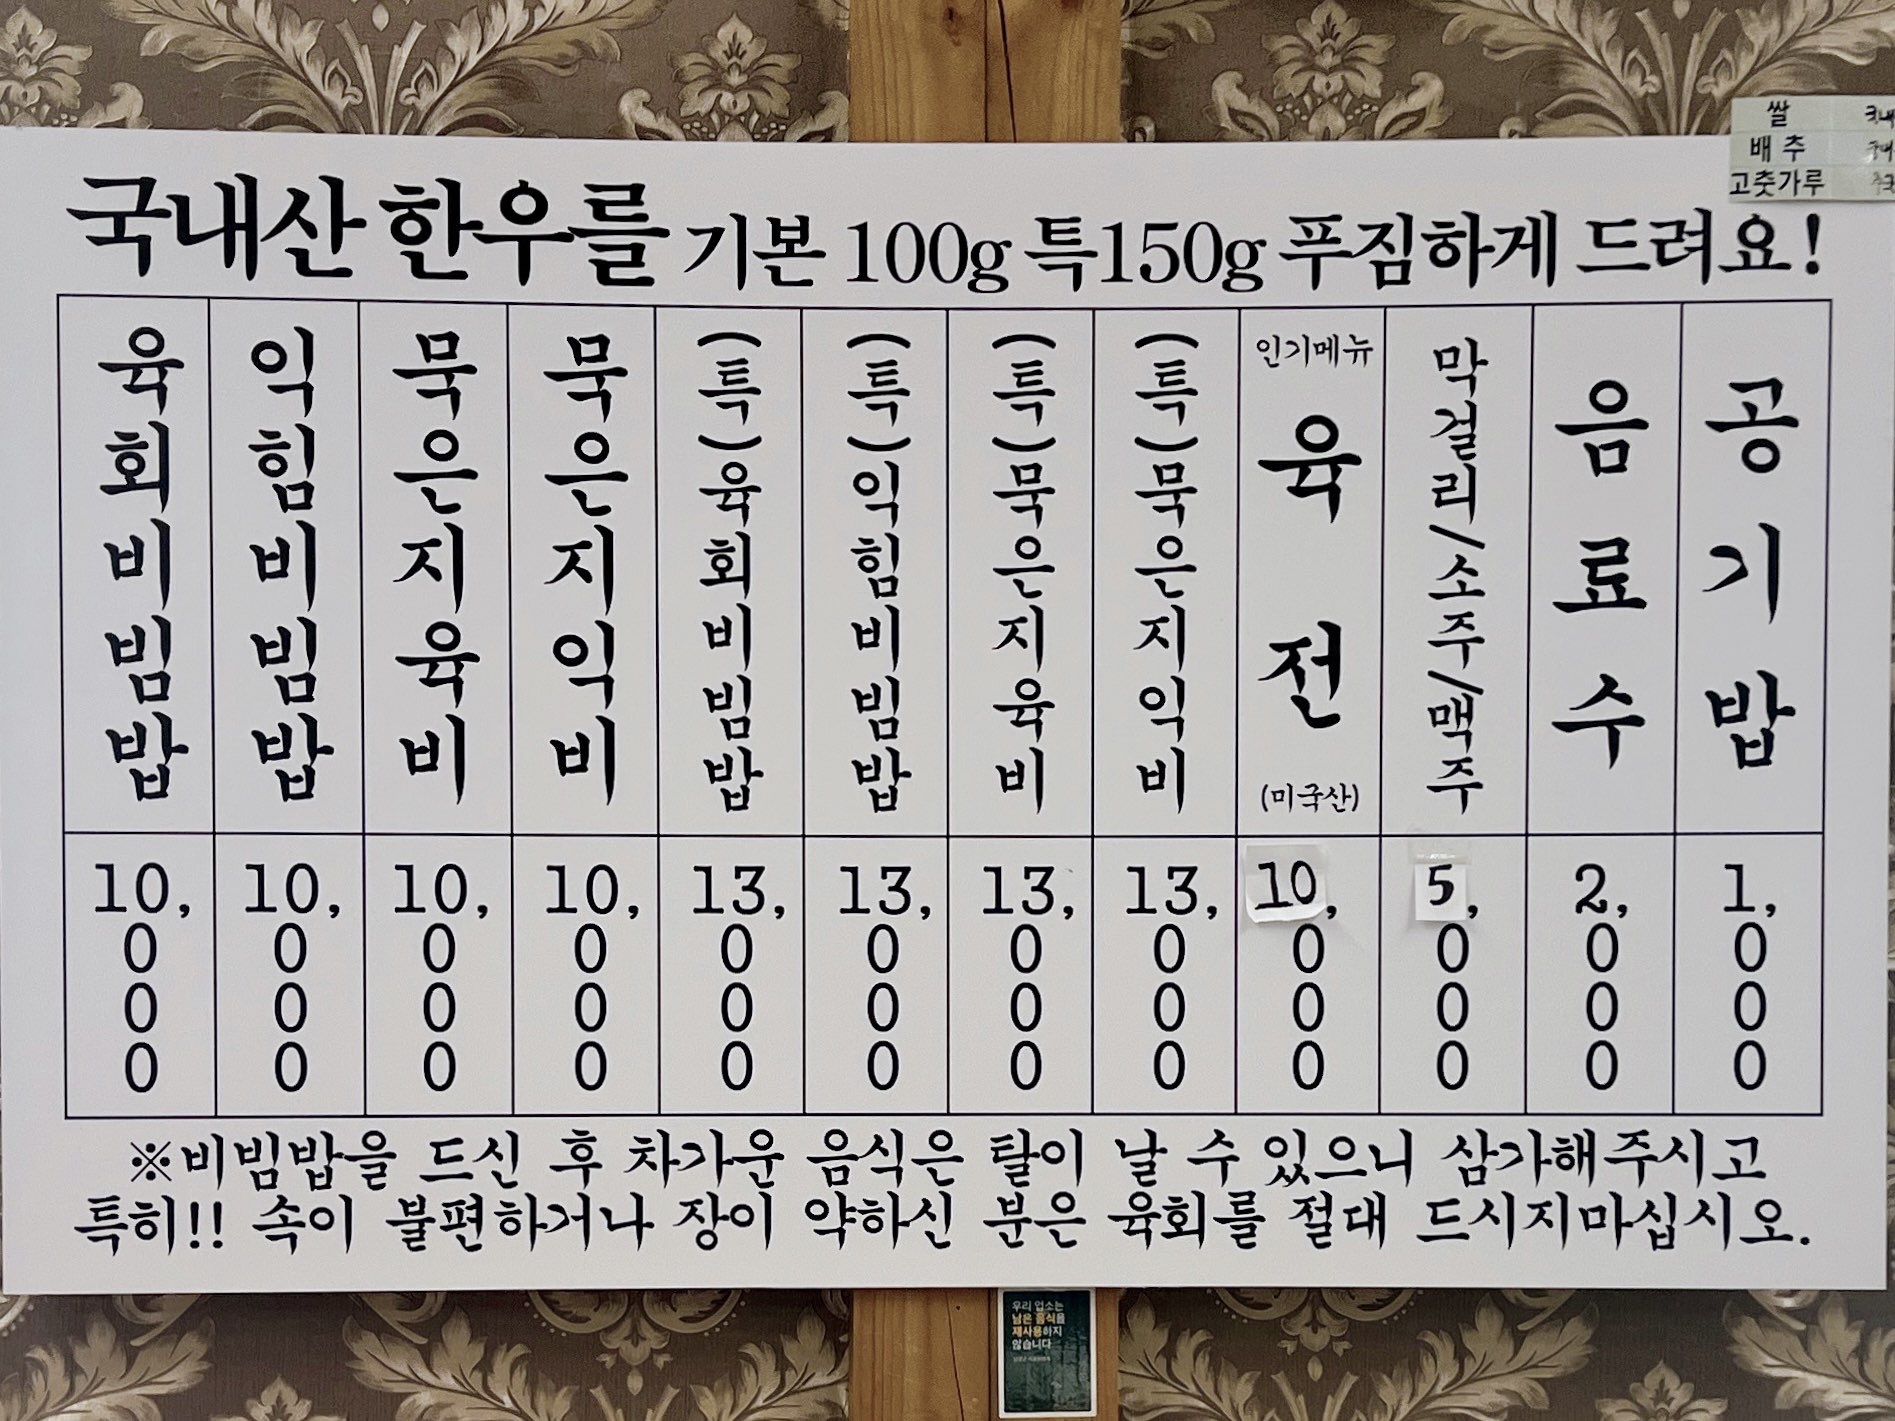 쌀
배추
고춧가루
국내산 한우를 기본 100g 특150g 푸짐하게 드려요!
육회비빔밥 10,000
익힘비빔밥 10,000
묵은지육비 10,000
묵은지익비 10,000
(특)육회비빔밥 13,000
(특)익힘비빔밥 13,000
(특)묵은지육비 13,000
(특)묵은지익비 13,000
인기메뉴 육전 (미국산) 10,000
막걸리/소주/맥주 5,000
음료수 2,000
공기밥 1,000
※비빔밥을 드신 후 차가운 음식은 탈이 날 수 있으니 삼가해주시고
특히!! 속이 불편하거나 장이 약하신 분은 육회를 절대 드시지마십시오.
우리 업소는
남은 음식을
재사용하지
않습니다